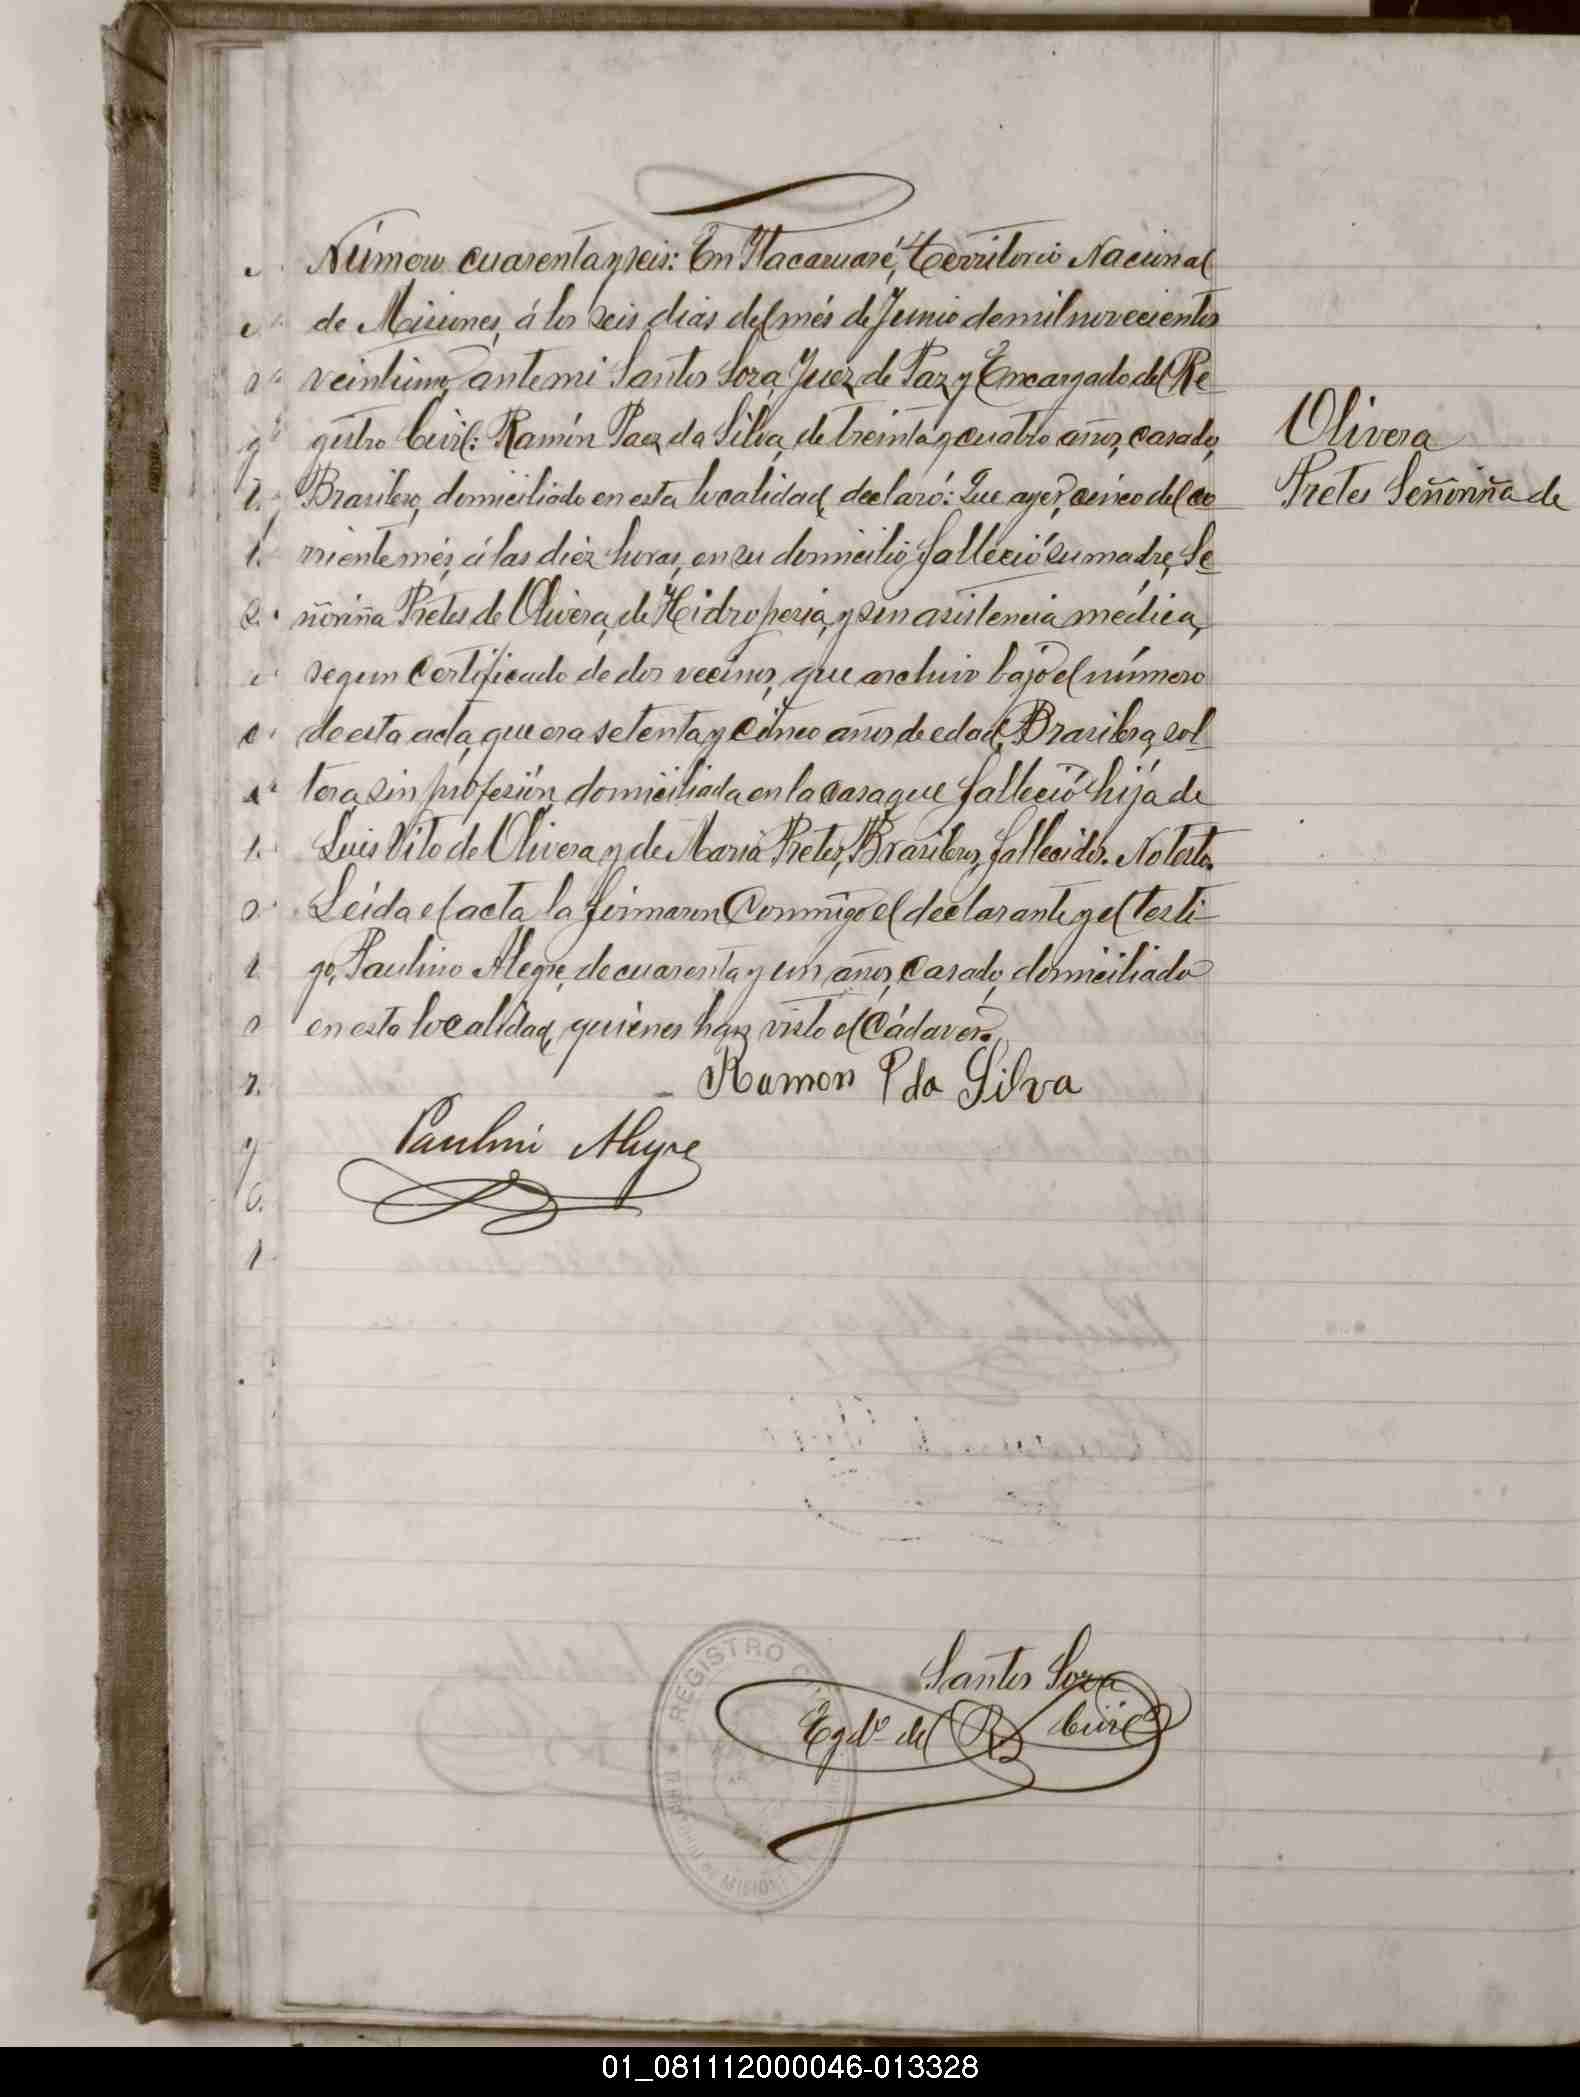 Número cuarenta y seis: En Itacaruaré, Territorio Nacional
de Misiones, á los seis dias del més de Junio de mil novecientos
veintiuno, ante mi Santos Soza, Juez de Paz y Encargado del Re-
gistro Civil: Ramón Paez da Silva, de treinta y cuatro años, casado,
Brasilero, domiciliado en esta localidad, declaró: Que ayer, cinco del co-
rriente més, á las diéz horas, en su domicilio falleció su madre, Se-
Olivera
Pretes Señoriña de
ñoriña Pretes de Olivera, de Hidropesia, y sin asistencia médica,
segun certificado de dos vecinos, que archivo bajo el número
de esta acta, que era setenta y cinco años de edad, Brasilera, sol-
tera, sin profesión, domiciliada en la casa que falleció hija de
Luis Vito de Olivera y de Maria Pretes, Brasileros, fallecidos. No testo.
Leída el acta la firmaron conmigo el declarante y el testi-
go, Paulino Alegre, de cuarenta y un años, casado, domiciliado
en esta localidad, quiénes han visto el cádaver.
Ramon P da Silva
Paulino Alegre
Santos Soza
Egdo del R Civil
REGISTRO
MISIONES
01_081112000046-013328